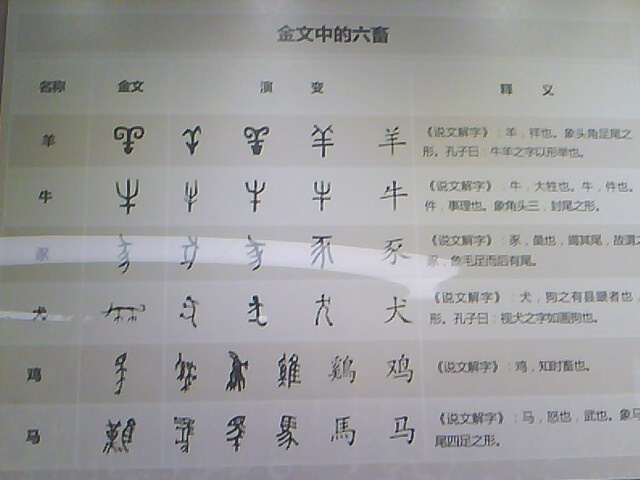 金文中的六畜
名称 金文 演 变 释 义
羊 羊 《说文解字》：羊，祥也。象头角足尾之
形。孔子曰：牛羊之字以形举也。
牛 牛 《说文解字》：牛，大牲也。牛，件也。
件，事理也。象角头三，封尾之形。
豕 豕 《说文解字》：豕，彘也，竭其尾，故谓之
豕，象毛足而后有尾。
犬 犬 《说文解字》：犬，狗之有县蹏者也，
形。孔子曰：视犬之字如画狗也。
鸡 雞 鷄 鸡 《说文解字》：鸡，知时畜也。
马 馬 马 《说文解字》：马，怒也，武也。象马
尾四足之形。